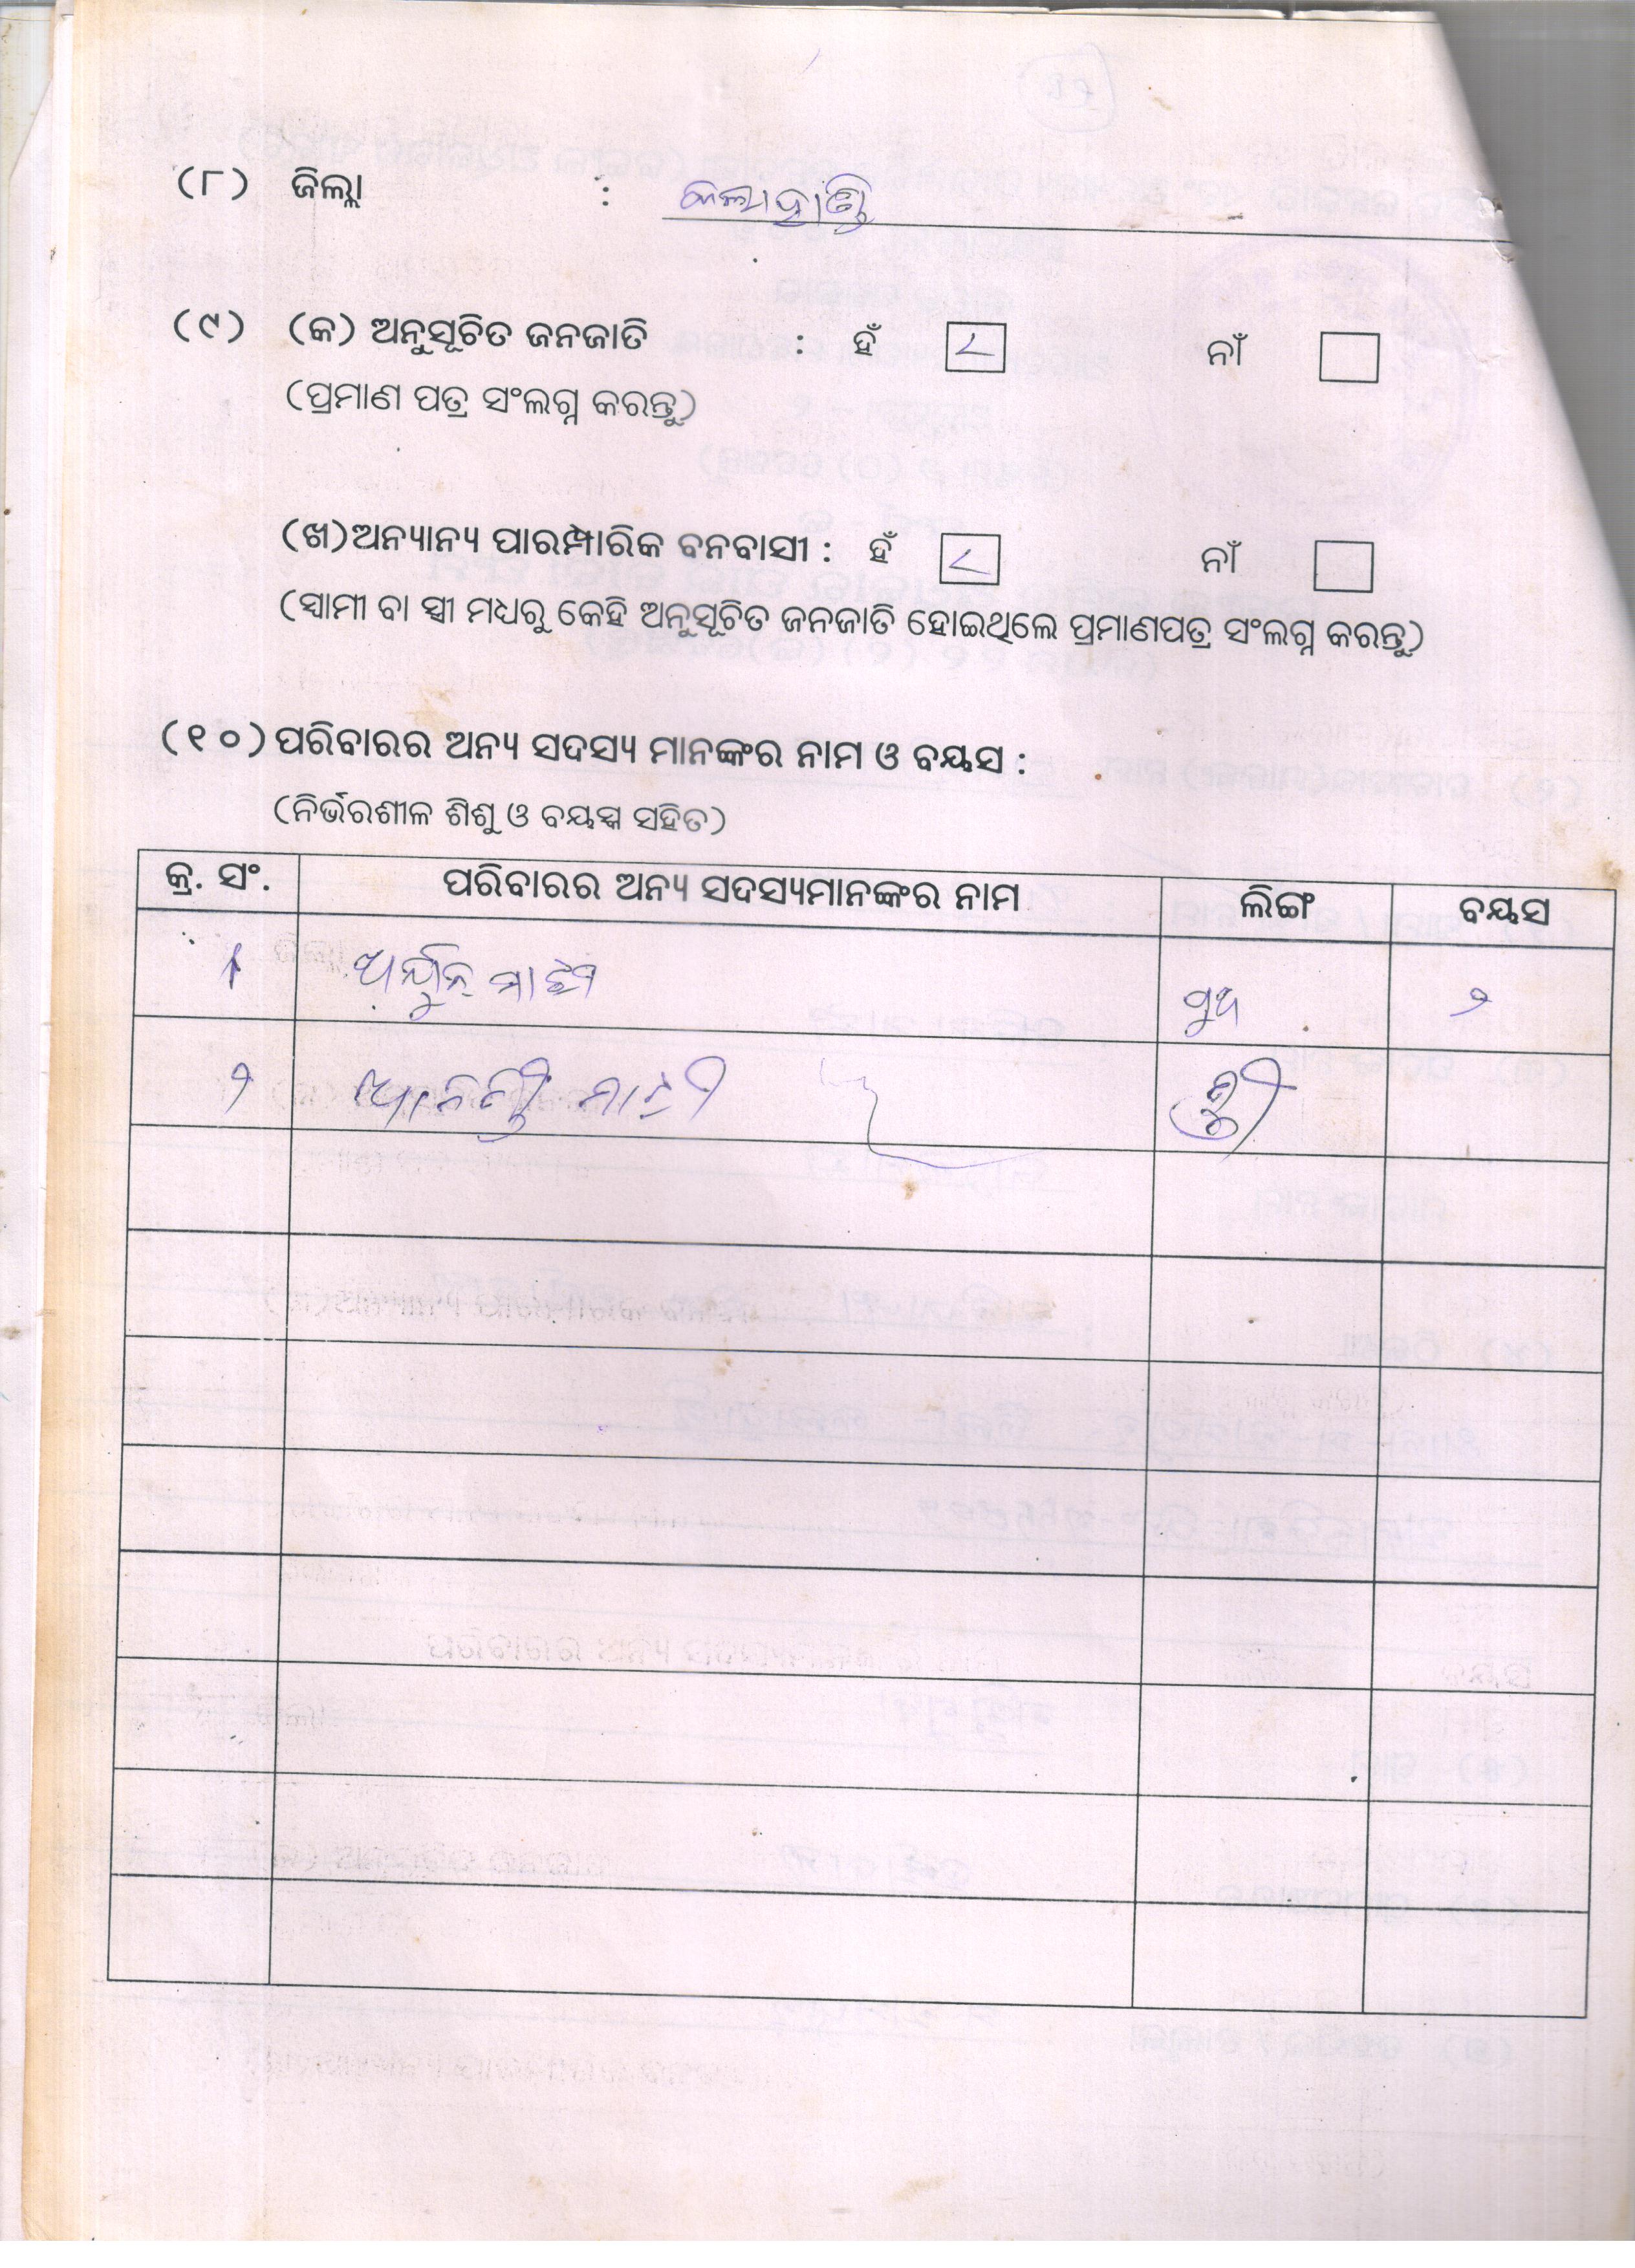 (୮) ଜିଲ୍ଲା : କଳାହାଣ୍ଡି
(୯) (କ) ଅନୁସୂଚିତ ଜନଜାତି : ହଁ ନାଁ
(ପ୍ରମାଣ ପତ୍ର ସଂଲଗ୍ନ କରନ୍ତୁ)
(ଖ)ଅନ୍ୟାନ୍ୟ ପାରମ୍ପାରିକ ବନବାସୀ : ହଁ ନାଁ
(ସ୍ୱାମୀ ବା ସ୍ତ୍ରୀ ମଧ୍ୟରୁ କେହି ଅନୁସୂଚିତ ଜନଜାତି ହୋଇଥିଲେ ପ୍ରମାଣପତ୍ର ସଂଲଗ୍ନ କରନ୍ତୁ)
(୧୦) ପରିବାରର ଅନ୍ୟ ସଦସ୍ୟ ମାନଙ୍କର ନାମ ଓ ବୟସ :
(ନିର୍ଭରଶୀଳ ଶିଶୁ ଓ ବୟସ୍କ ସହିତ)
କ୍ର. ସଂ. ପରିବାରର ଅନ୍ୟ ସଦସ୍ୟମାନଙ୍କର ନାମ ଲିଙ୍ଗ ବୟସ
୧ ଅର୍ଯ୍ୟୁନ ମାଝୀ ପୁଅ ୨
୨ ମାଝୀ ସ୍ତ୍ରୀ